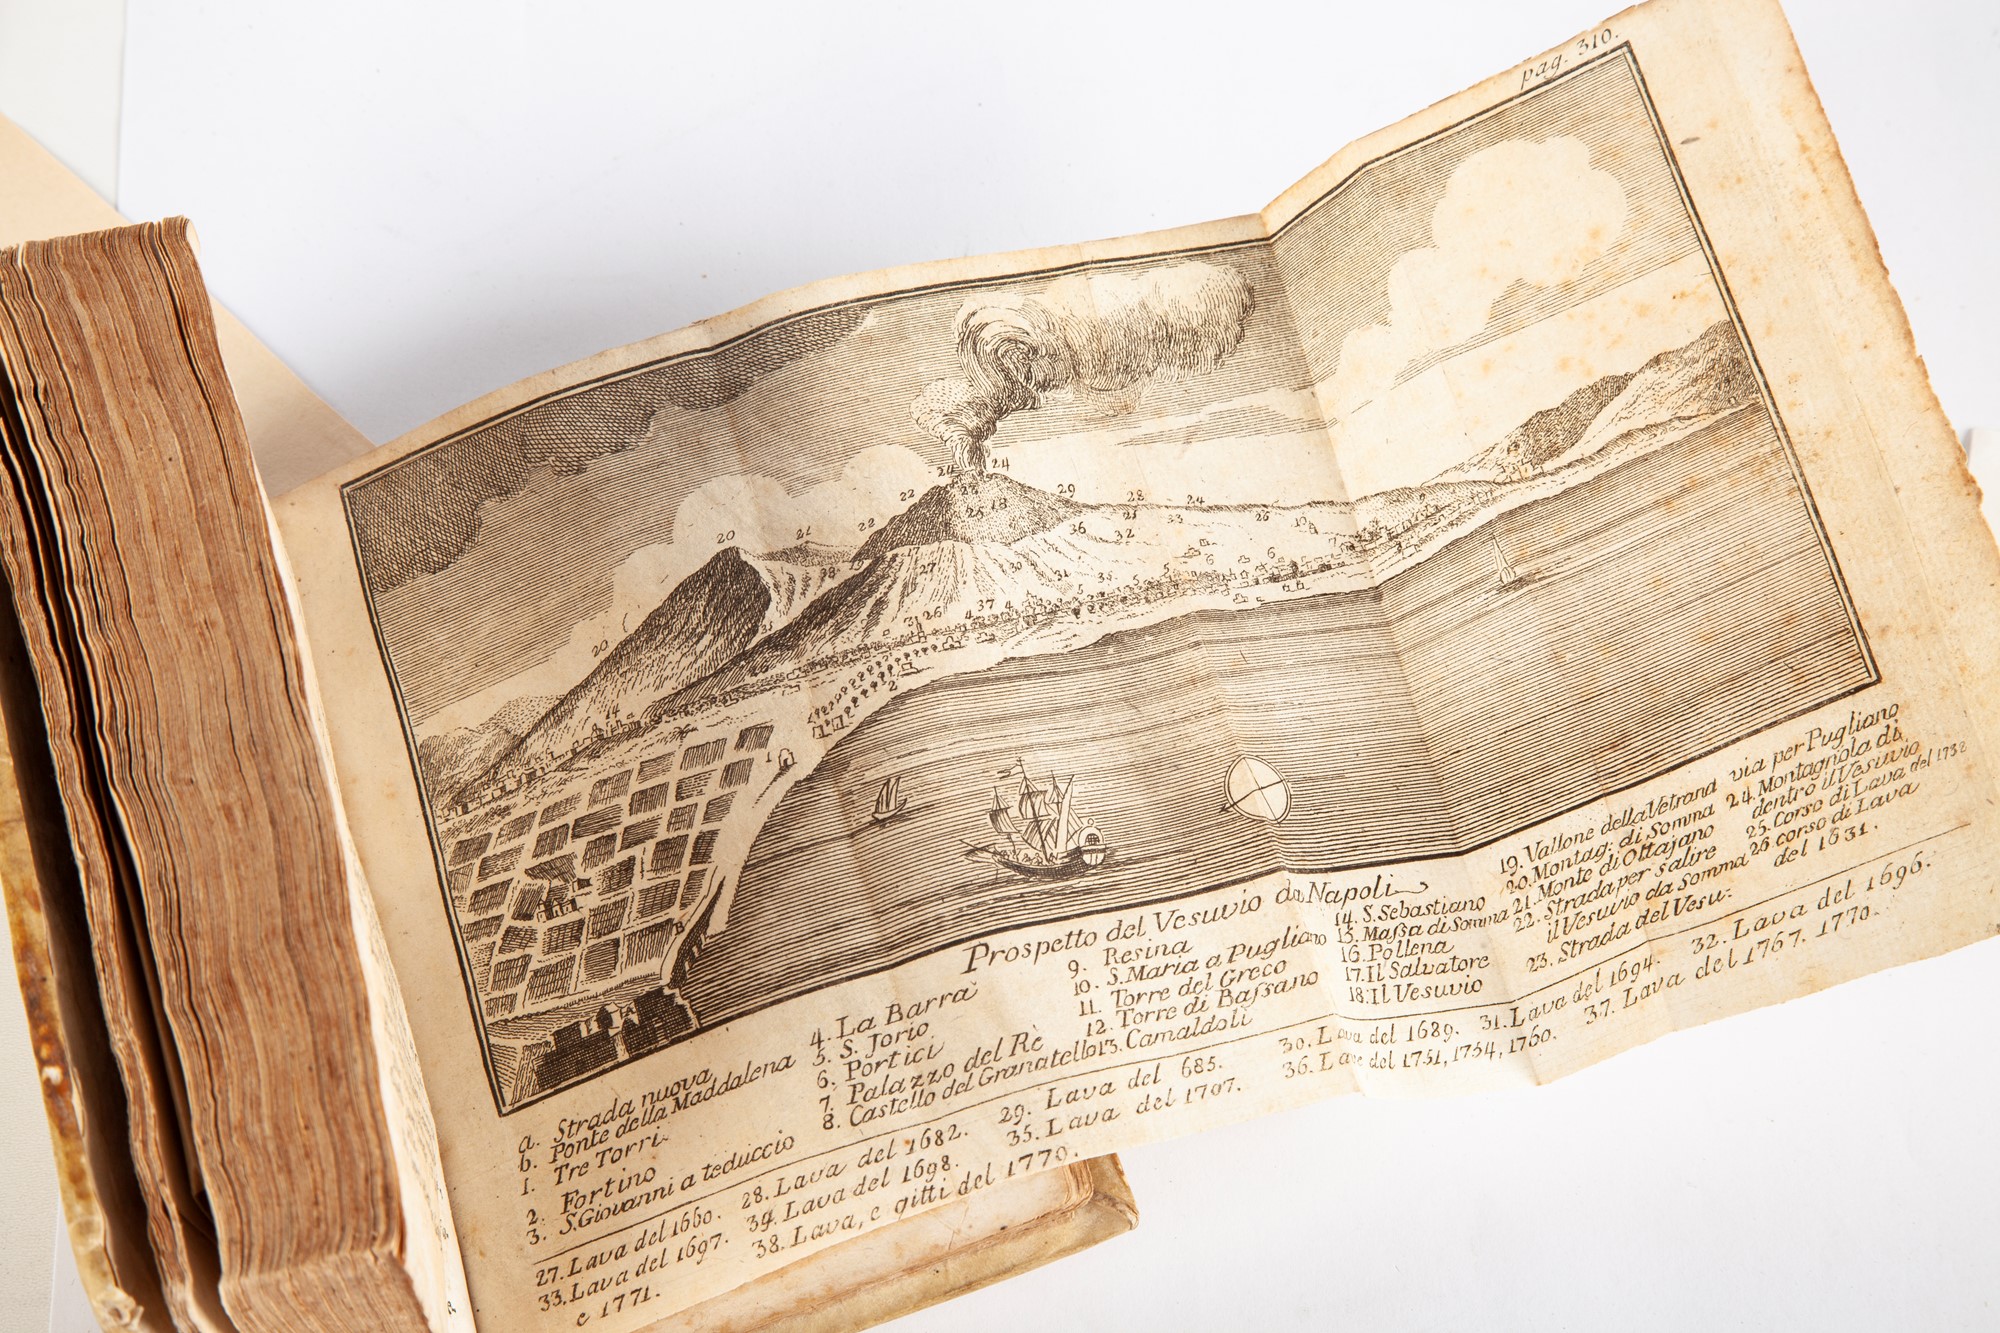 pag. 310.
24 24
22 23 29 28 24
22 25 18 21 33 26 10
20 21 36 32
20 27 30 31 35
14 26 37 4
2
1
B
A
Prospetto del Vesuvio da Napoli
a. Strada nuova
b. Ponte della Maddalena
1. Tre Torri
2. Fortino
3. S. Giovanni a teduccio
4. La Barra
5. S. Jorio
6. Portici
7. Palazzo del Rè
8. Castello del Granatello
9. Resina
10. S. Maria a Pugliano
11. Torre del Greco
12. Torre di Baſsano
13. Camaldoli
14. S. Sebastiano
15. Maſsa di Somma
16. Pollena
17. Il Salvatore
18. Il Vesuvio
19. Vallone della Vetrana
20. Montag. di Somma
21. Monte di Ottajano
22. Strada per salire
il Vesuvio da Somma
23. Strada del Vesu:
via per Pugliano
24. Montagnola di
dentro il Vesuvio
25. Corso di Lava del 1732
26 corso di Lava
del 1631.
27. Lava del 1660. 28. Lava del 1682. 29. Lava del 685. 30. Lava del 1689. 31. Lava del 1694. 32. Lava del 1696.
33. Lava del 1697. 34. Lava del 1698. 35. Lava del 1707. 36. Lave del 1751, 1754, 1760. 37. Lava del 1767. 1770.
38. Lava, e gitti del 1779.
e 1771.